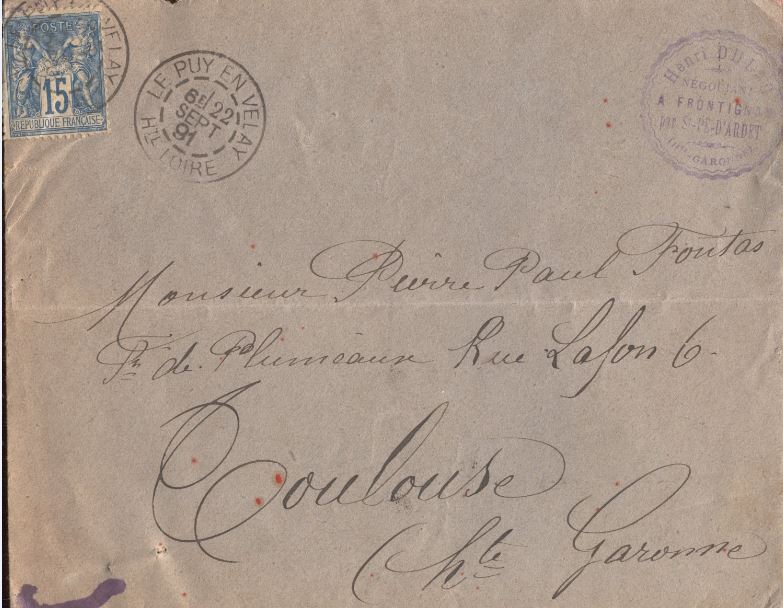 POSTES
15
RÉPUBLIQUE FRANÇAISE
VELAY
LE PUY EN VELAY
8E 22
SEPT
91
HTE LOIRE
Henri
NÉGOCIANT
A FRONTIGNAN
par St-PÉ-D'ARDET
Hte-GARONNE
Monsieur Pierre Paul Fontas
Ft de Plumeaux Rue Lafon 6.
Toulouse
(hte Garonne